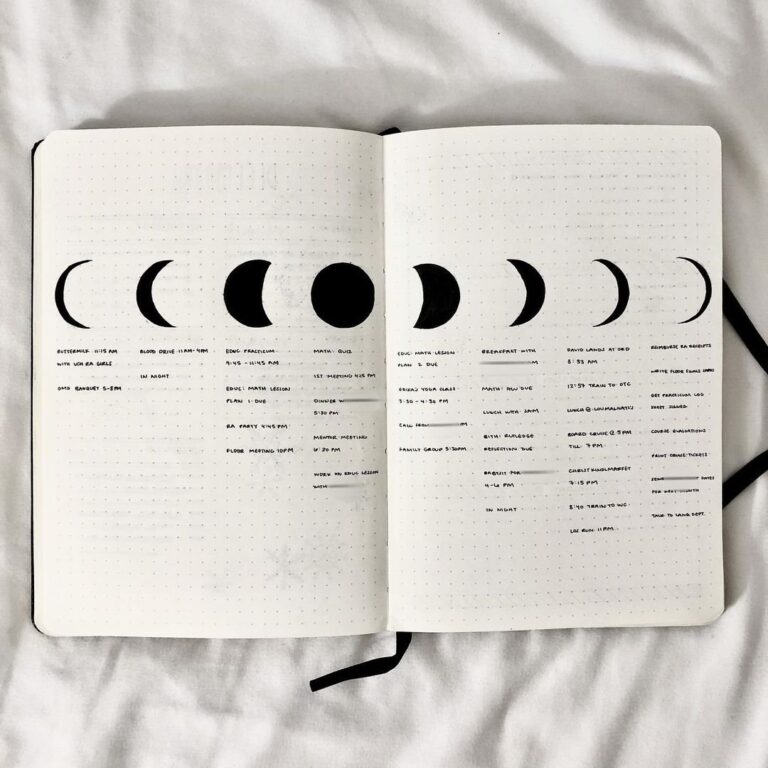 BUTTERMILK 11:15 AM
WITH UCH RA GIRLS
BANQUET 5-8PM
BLOOD DRIVE 11AM-4PM
IN NIGHT
EDUC PRACTICUM
9:45 - 11:45 AM
EDUC: MATH LESSON
PLAN 1 DUE
RA PARTY 4:45 PM
FLOOR MEETING 10PM
MATH: QUIZ
1ST MEETING 4:15 PM
DINNER W
5:30 PM
MENTOR MEETING
6:30 PM
WORK ON EDUC LESSON
WITH
EDUC: MATH LESSON
PLAN 2 DUE
FRIDAY YOGA CLASS
3:30 - 4:30 PM
CALL FROM
FAMILY GROUP 5:30PM
BREAKFAST WITH
MATH: HW DUE
LUNCH WITH
BITH: RUTLEDGE
REFLECTION DUE
BABYSIT FOR
4-6 PM
IN NIGHT
DAVID LANDS AT ORD
8:33 AM
12:57 TRAIN TO OTC
LUNCH @ LOUMALNATI'S
BOARD CRUISE @ 5PM
TILL 7PM
CHRISTKINDLMARKET
7:15 PM
8:40 TRAIN TO WC
LIC RUN 11PM
REIMBURSE RA RECEIPTS
WRITE FLOOR FINALS CARDS
GET PRACTICUM LOG
SHEET SIGNED
COURSE EVALUATIONS
PRINT CRUISE TICKETS
DATES
FOR NEXT MONTH
TALK TO LANG. DEPT.